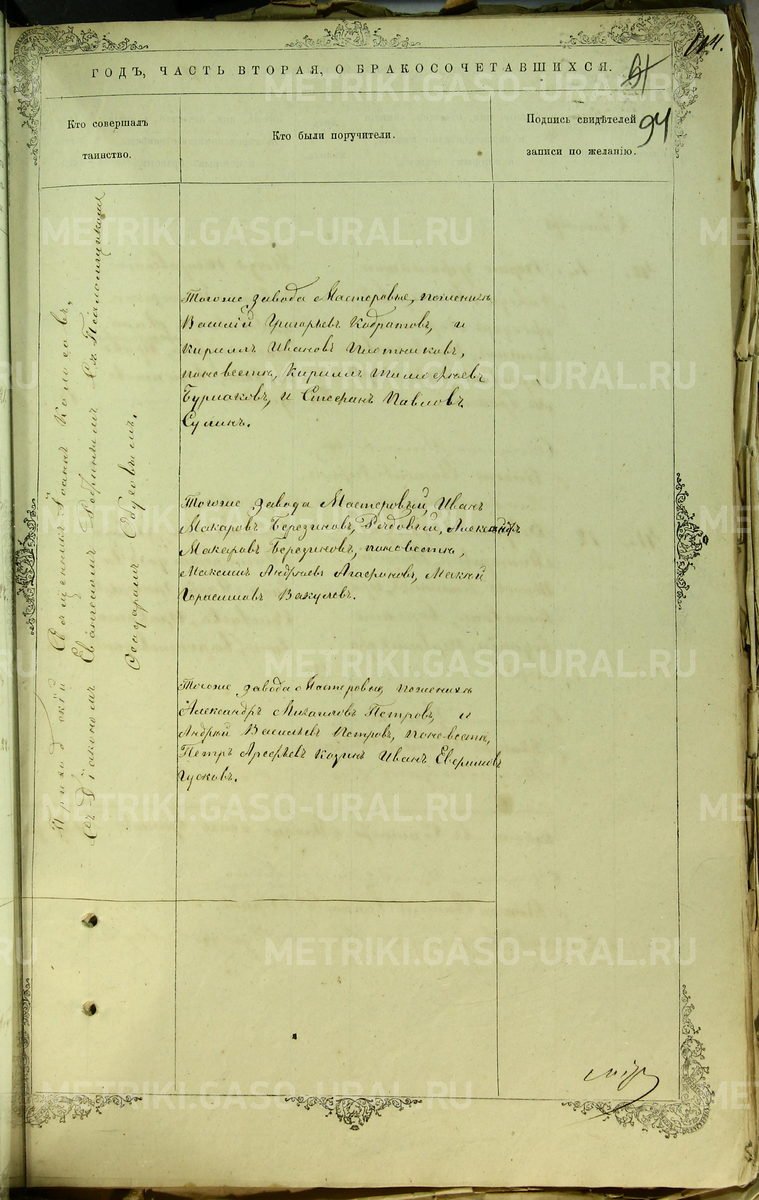 114.
ГОДЪ, ЧАСТЬ ВТОРАЯ, О БРАКОСОЧЕТАВШИХСЯ.
94
Кто совершалъ
таинство.
Кто были поручители.
Подпись свидѣтелей
записи по желанію.
Приходскій Священникъ Іоаннъ
съ Діакономъ Евангеломъ и Псаломщикомъ
Того же завода Мастеровые, по женихѣ
Василій Григорьевъ и
Кириллъ Ивановъ Плотниковъ,
по невѣстѣ, Кириллъ Тимофѣевъ
Бурмаковъ, и Стефанъ Павловъ
Сулинъ.
Того же завода Мастеровый, Иванъ
Макаровъ Березиновъ, Рядовый, Александръ
Макаровъ Березиновъ, по невѣстѣ,
Максимъ Андреевъ Агафоновъ, Мокей
Герасимовъ Вакулевъ.
Того же завода Мастеровые, по женихѣ
Александръ Михаиловъ Петровъ, и
Андрей Васильевъ Петровъ, по невѣстѣ,
Петръ Арефьевъ Козинъ Иванъ
Гусковъ.
METRIKI.GASO-URAL.RU